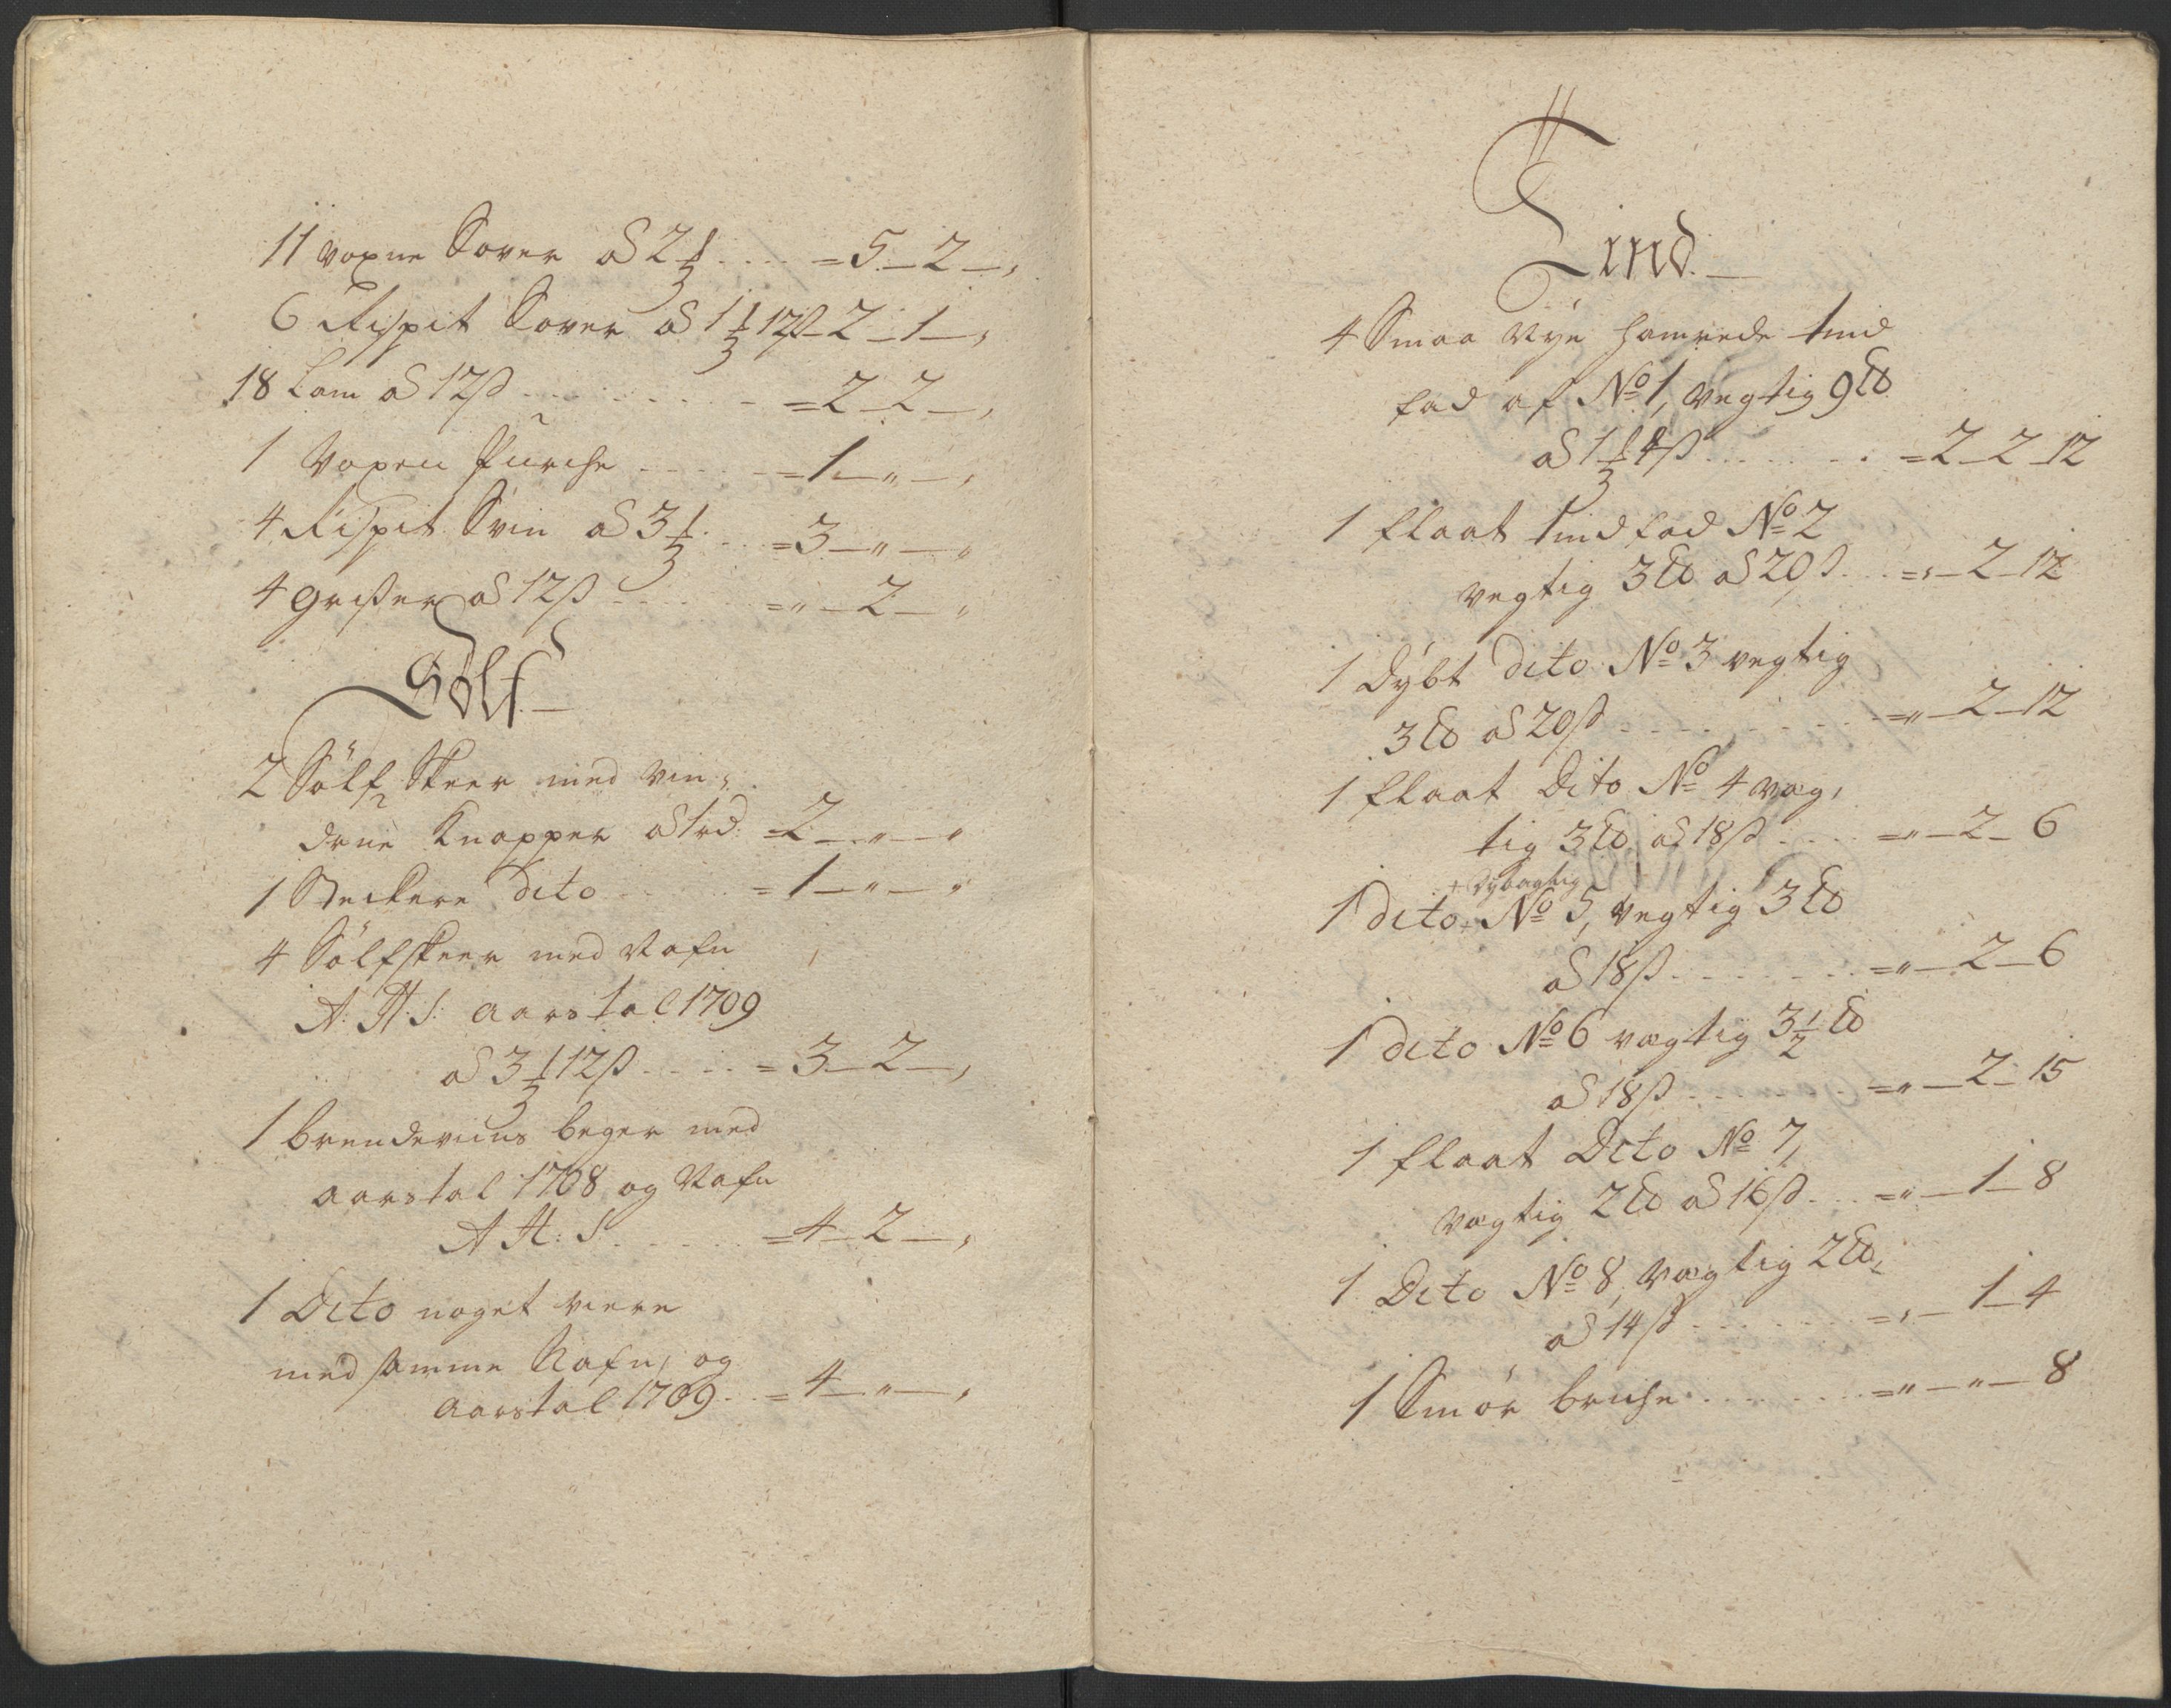 11 voxne Sover â 2 ⅓ .... = 5 – 2 – ,
6 Rispit Sover â 1 ⅓ 12ß – 2 – 1 – ,
18 Lam â 12ß ........ = 2 – 2 – ,
1 Voxen Purche ..... = 1 – " – ,
4 Rispit Svin â 3 ⅓ ... = 3 – " – "
4 Grißer â 12ß ...... = " – 2 – "
Sölf
2 Sölf Skeer med Vin,
drue Knapper â 1 rd: = 2 – " – "
1 Steckere dito ..... = 1 – " – "
4 Sölfskeer med Nafn
A: H: S: aarstal 1709
â 3 ⅓ 12ß ..... = 3 – 2 – ,
1 brendeviins beger med
aarstal 1708 og Nafn
A H: S ..... = 4 – 2 – ,
1 Dito noget
med samme Nafn, og
aarstal 1709 .. = 4 – " – ,
Tind.
4 Smaa Nye hamrede tind
fad af No 1, vegtig 9 ℔
â 1 ⅓ 4ß ....... = 2 – 2 – 12
1 flaat tind fad No 2
vegtig 3 ℔ â 20ß ... = , – 2 – 12
1 Dybt dito No 3 vegtig
3 ℔ â 20ß ....... = " – 2 – 12
1 flaat Dito No 4 væg,
tig 3 ℔ â 18ß .... = " – 2 – 6
+ dybagtig
1 dito + No 5, vegtig 3 ℔
â 18ß ....... = " – 2 – 6
1 dito No 6 vægtig 3 ½ ℔
â 18ß ....... = " – 2 – 15
1 flaat Dito No 7,
vægtig 2 ℔ â 16ß ... = " – 1 – 8
1 Dito No 8, vægtig 2 ℔,
â 14ß ....... = , – 1 – 4
1 Smör briche ....... = " – " – 8